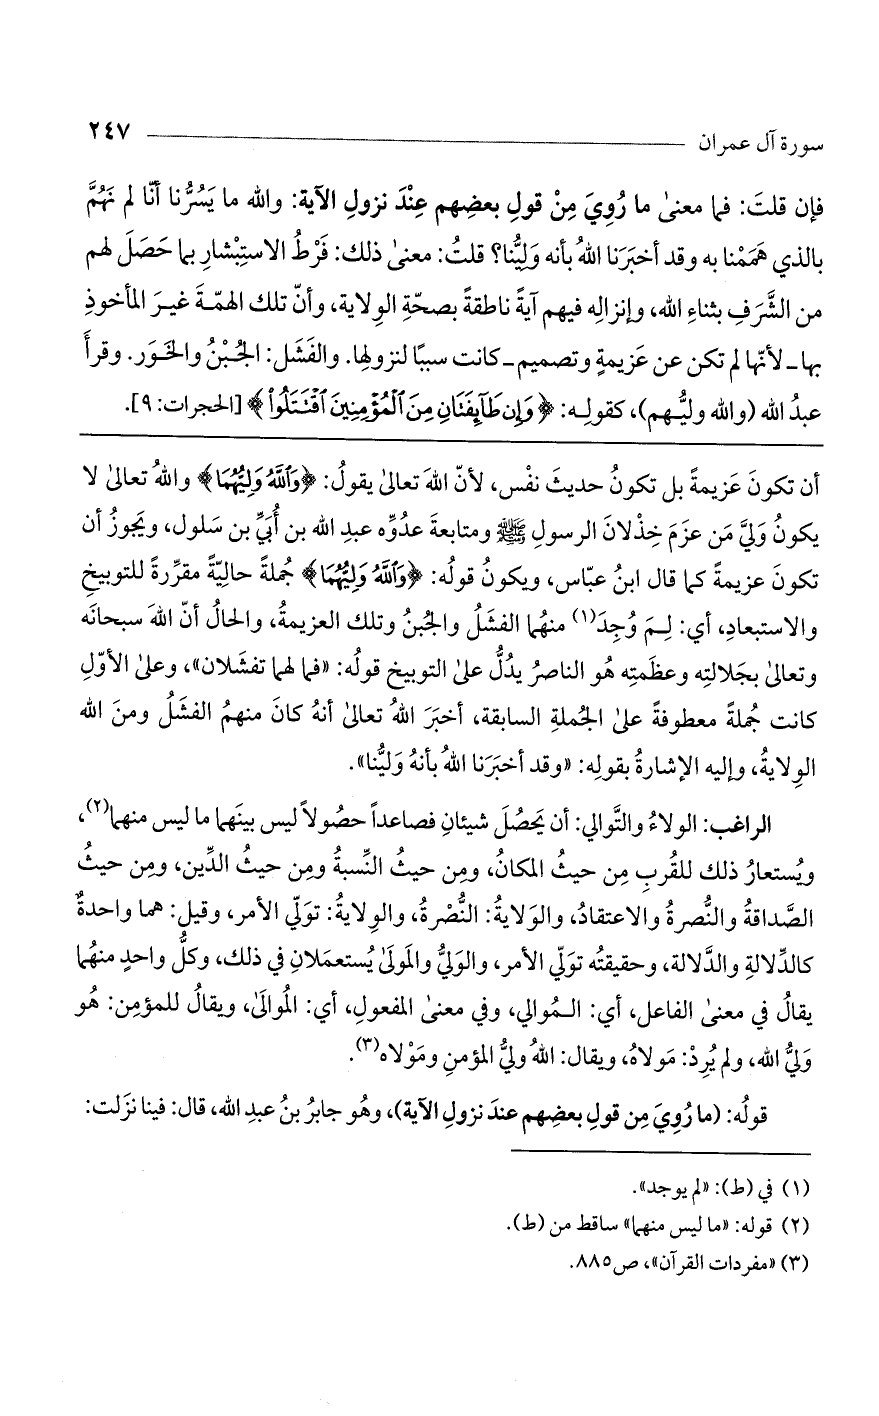 سورة آل عمران ٢٤٧
فإن قلتَ: فما معنىٰ ما رُوِيَ مِنْ قولِ بعضِهم عِنْدَ نزولِ الآية: والله ما يَسُرُّنا أنّا لم نَهُمَّ
بالذي هَمَمْنا به وقد أخبَرَنا اللهُ بأنه وَليُّنا؟ قلتُ: معنىٰ ذلك: فَرْطُ الاستِبْشارِ بما حَصَلَ لهم
من الشَّرَفِ بثناءِ الله، وإنزالِه فيهم آيةً ناطقةً بصحّةِ الوِلاية، وأنّ تلك الهمّةَ غيرَ المأخوذِ
بها ـ لأنّها لم تكن عن عَزيمةٍ وتصميم ـ كانت سببًا لنزولِها. والفَشَل: الجُبْنُ والخَوَر. وقرأَ
عبدُ الله (والله وليُّهم)، كقولِه: ﴿وَإِن طَآئِفَتَانِ مِنَ ٱلْمُؤْمِنِينَ ٱقْتَتَلُوا۟﴾ [الحجرات: ٩].
أن تكونَ عَزيمةً بل تكونُ حديثَ نفْس، لأنّ اللهَ تعالىٰ يقولُ: ﴿وَٱللَّهُ وَلِيُّهُمَا﴾ واللهُ تعالىٰ لا
يكونُ وَليَّ مَن عزَمَ خِذْلانَ الرسولِ ﷺ ومتابعةَ عدُوِّه عبدِ الله بن أُبيِّ بن سَلول، ويَجوزُ أن
تكونَ عزيمةً كما قال ابنُ عبّاس، ويكونُ قولُه: ﴿وَٱللَّهُ وَلِيُّهُمَا﴾ جُملةً حاليّةً مقرِّرةً للتوبيخِ
والاستبعادِ، أي: لِـمَ وُجِدَ(١) منهُما الفشَلُ والجُبنُ وتلك العزيمةُ، والحالُ أنّ اللهَ سبحانَه
وتعالىٰ بجَلالتِه وعظَمتِه هُو الناصرُ يدُلُّ علىٰ التوبيخِ قولُه: «فما لهما تفشَلان»، وعلىٰ الأوّلِ
كانت جُملةً معطوفةً علىٰ الجُملةِ السابقة، أخبَرَ اللهُ تعالىٰ أنهُ كانَ منهمُ الفشَلُ ومنَ الله
الوِلايةُ، وإليه الإشارةُ بقولِه: «وقد أخبَرَنا اللهُ بأنهُ وَليُّنا».
الراغب: الولاءُ والتَّوالي: أن يَحصُلَ شيئانِ فصاعداً حصُولاً ليس بينَهما ما ليس منهما(٢)،
ويُستعارُ ذلك للقُربِ مِن حيثُ المكانُ، ومِن حيثُ النِّسبةُ ومِن حيثُ الدِّين، ومِن حيثُ
الصَّداقةُ والنُّصرةُ والاعتقادُ، والوَلايةُ: النُّصْرةُ، والوِلايةُ: تولّي الأمر، وقيل: هما واحدةٌ
كالدِّلالةِ والدَّلالة، وحقيقتُه تولّي الأمر، والوَليُّ والمَولَىٰ يُستعمَلانِ في ذلك، وكلُّ واحدٍ منهُما
يقالُ في معنىٰ الفاعل، أي: الـمُوالي، وفي معنىٰ المفعولِ، أي: المُوالَىٰ، ويقالُ للمؤمِن: هُو
وَليُّ الله، ولم يُرِدْ: مَولاهُ، ويقال: اللهُ وليُّ المؤمنِ ومَوْلاه(٣).
قولُه: (ما رُوِيَ مِن قولِ بعضِهم عندَ نزولِ الآية)، وهُو جابرُ بنُ عبدِ الله، قال: فينا نزَلت:
(١) في (ط): «لم يوجد».
(٢) قوله: «ما ليس منهما» ساقط من (ط).
(٣) «مفردات القرآن»، ص٨٨٥.